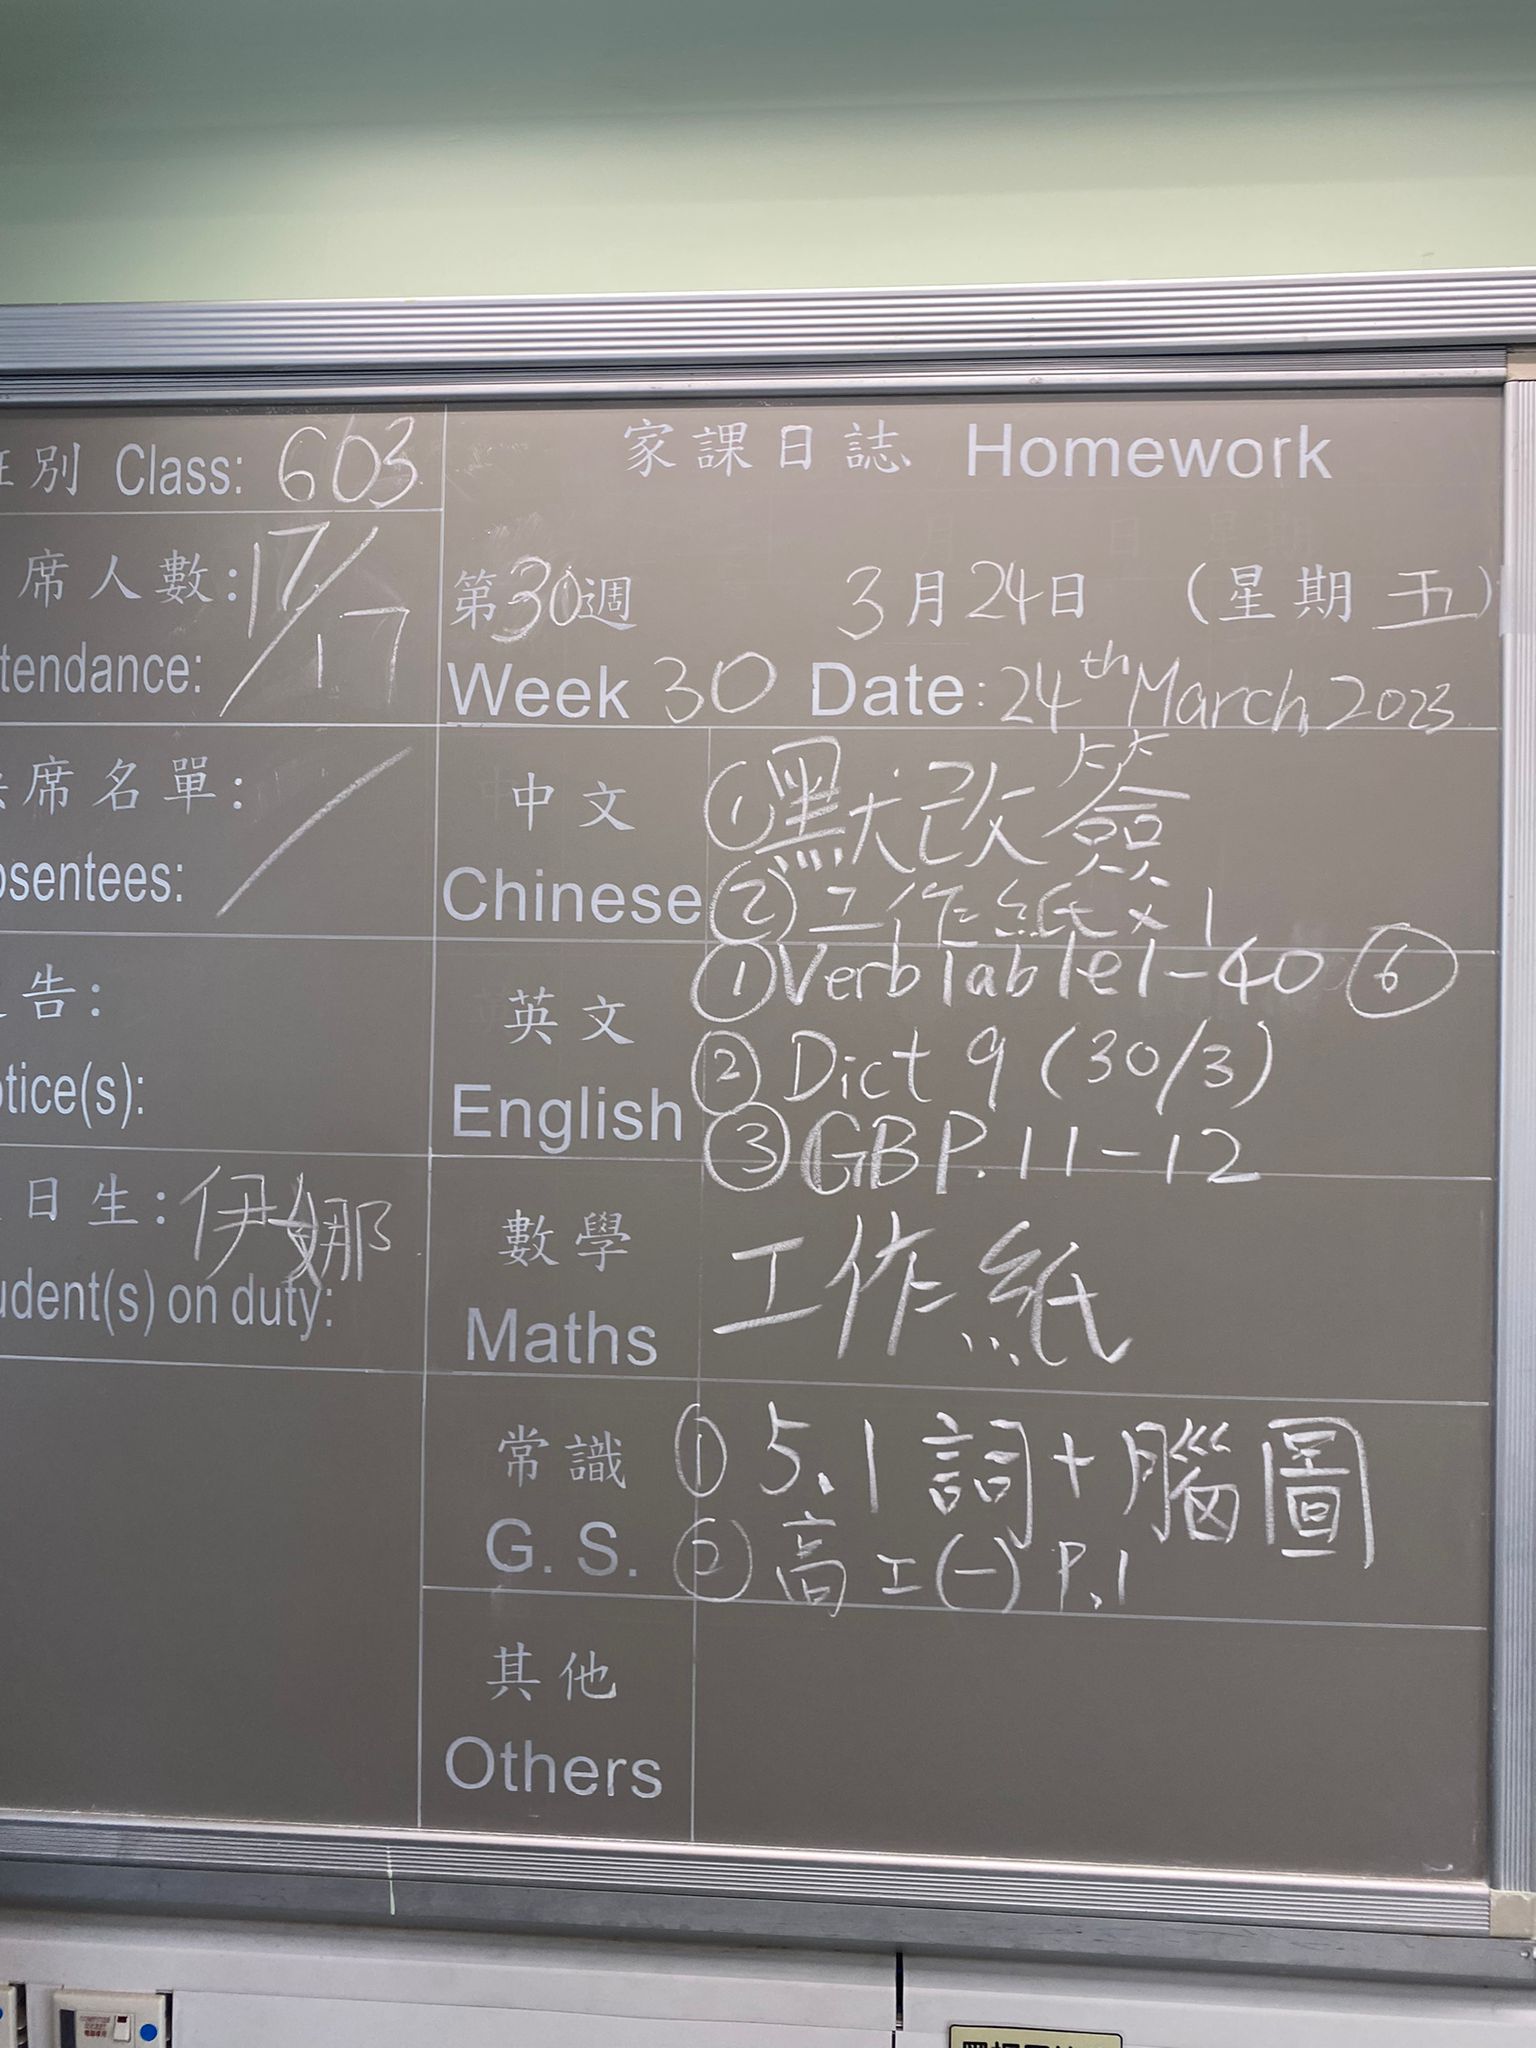 別 Class: 603
席人數: 17/17
tendance:
席名單: /
sentees:
告:
tice(s):
日生: 伊娜
udent(s) on duty:
家課日誌 Homework
第30週 3月24日 (星期五)
Week 30 Date: 24th March, 2023
中文
Chinese
①默改簽
②工作紙簽×1
英文
English
①Verb Table 1-40 ⑥
②Dict 9 (30/3)
③GB P.11-12
數學
Maths
工作紙
常識
G. S.
①5.1 詞+腦圖
②高工(一) P.1
其他
Others